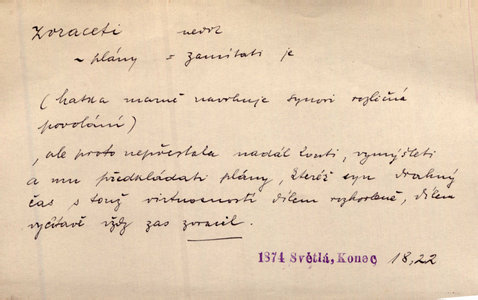 zvraceti nedok
~ plány = zamítati je
(matka marně navrhuje synovi rozličná
povolání)
, ale proto nepřestala nadál snouti, vymýšleti
a mu předkládati plány, kteréž syn drahný
čas s touž virtuosností dílem rozhodně, dílem
vyčítavě vždy zas zvracel.
1874 Světlá, Konec 18,22